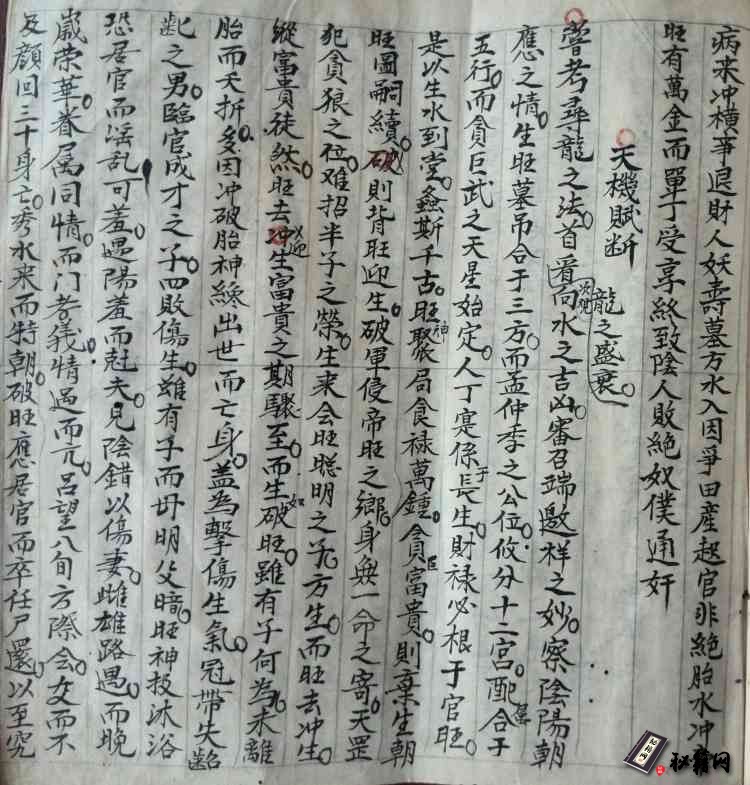 病来冲横爭退財人妖壽墓方水入因爭田産起官非絶胎水冲
旺有萬金而單丁受享終致陰人敗絶奴僕通奸
天機賦断
嘗考尋龍之法首看向水之吉凶審召端邀祥之妙察陰陽朝
次覌龍之盛衰
應之情生旺墓吊合于三方而孟仲季之公位攸分十二宫配合于
五行而貪巨武之天星始定人丁寔係于長生財禄必根于官旺
是以生水到堂螽斯千古旺神聚局食禄萬鍾貪富貴則棄生朝
旺圖嗣續破則背旺迎生破軍侵帝旺之鄉身無一命之寄天罡
犯貪狼之位难招半子之榮生来会旺聪明之子方生而旺去冲生
縱富貴徒然旺去迎生富貴之期驟至而生如破旺雖有子何為未離
胎而夭折多因冲破胎神纔出世而亡身盖為擊傷生氣冠帶失齠
齔之男臨官成才之子四敗傷生雖有子而母明父暗旺神投沐浴
恐居官而滛乱可羞遇陽羞而尅夫見陰錯以傷妻雌雄路遇而晚
歲荣華眷属同情而门孝義情過而亢吕望八旬方際会交而不
及顔回三十身亡秀水来而特朝破旺應居官而卒任尸還以至究
秘籍网